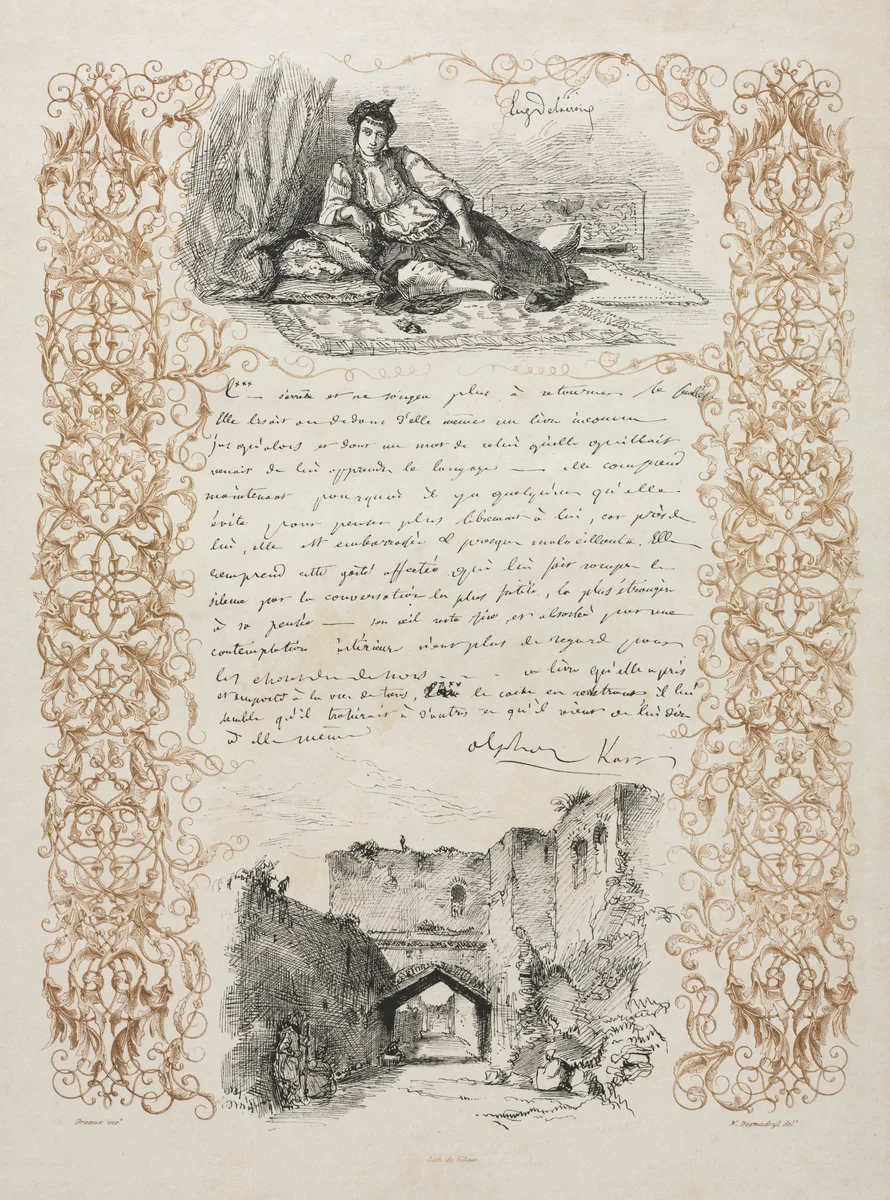 Eug Delacroix
C*** s'arrêta et ne songea plus à retourner
Elle lisait au dedans d'elle même un livre inconnu
jusqu'alors et dont un mot de celui qu'elle quittait
venait de lui apprendre le langage — elle comprend
maintenant pourquoi il y a quelqu'un qu'elle
évite pour penser plus librement à lui, car près de
lui, elle est embarrassée & presque malveillante. Elle
comprend cette gaité affectée qui lui fait rompre le
silence par la conversation la plus futile, la plus étrangère
à sa pensée — son œil reste fixe et absorbé par une
contemplation intérieure n'a plus de regard pour
les choses du dehors — ce livre qu'elle a pris
et emporté à la vue de tous, le cache en rentrant il lui
semble qu'il trahirait à d'autres ce qu'il vient de lui dire
à elle même
Alphonse Karr
N. Desmadryl del.
Lith. de